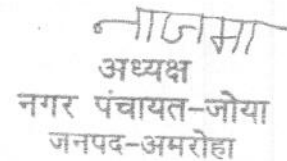 नाजमा
अध्यक्ष
नगर पंचायत-जोया
जनपद-अमरोहा